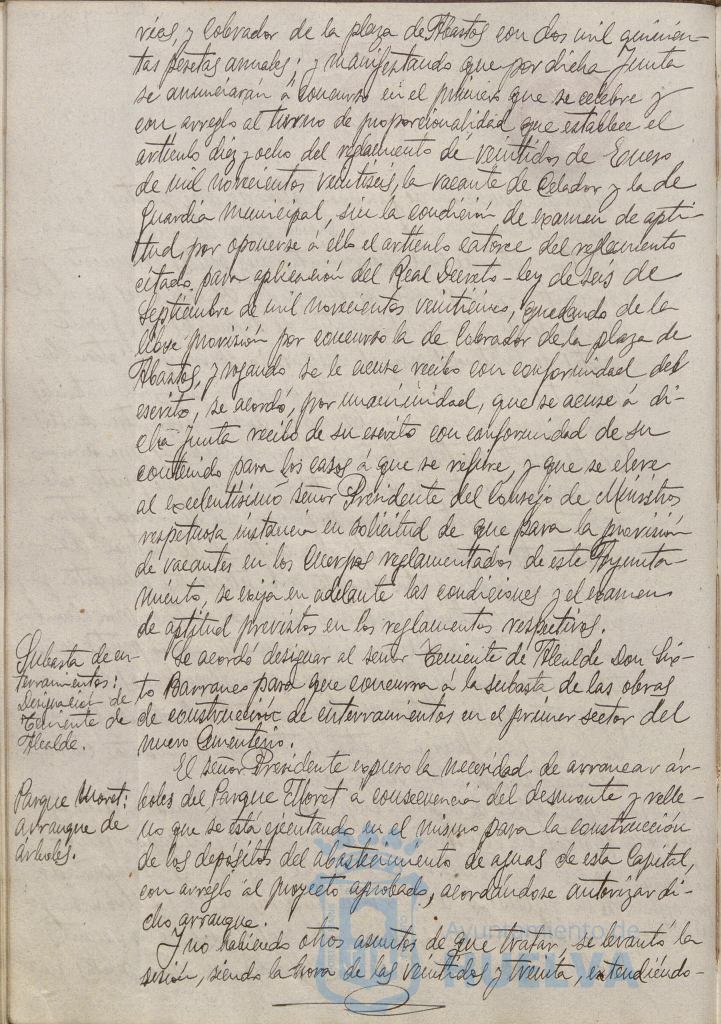 rías, y Cobrador de la plaza de Abastos con dos mil quinien-
tas pesetas anuales; y manifestando que por dicha Junta
se anunciarán á concurso en el primero que se celebre y
con arreglo al turno de proporcionalidad que establece el
artículo diez y ocho del reglamento de veintidos de Enero
de mil novecientos veintiseis, la vacante de Celador y la de
Guardia municipal, sin la condición de examen de apti-
tud, por oponerse á ello el artículo catorce del reglamento
citado para aplicación del Real Decreto-ley de seis de
Septiembre de mil novecientos veinticinco, quedando de la
libre provisión por concurso la de Cobrador de la plaza de
Abastos, y rogando se le acuse recibo con conformidad del
escrito, se acordó, por unanimidad, que se acuse á di-
cha Junta recibo de su escrito con conformidad de su
contenido para los casos á que se refiere, y que se eleve
al excelentísimo señor Presidente del Consejo de Ministros
respetuosa instancia en solicitud de que para la provisión
de vacantes en los Cuerpos reglamentados de este Ayunta-
miento, se exija en adelante las condiciones y el examen
de aptitud previstos en los reglamentos respectivos.
Subasta de en-
terramientos:
Designación de
Teniente de
Alcalde.
Se acordó designar al señor Teniente de Alcalde Don Six-
to Barranco para que concurra á la subasta de las obras
de construcción de enterramientos en el primer sector del
nuevo Cementerio.
Parque Moret:
arranque de
árboles.
El señor Presidente expuso la necesidad de arrancar ár-
boles del Parque Moret a consecuencia del desmonte y relle-
no que se está ejecutando en el mismo para la construcción
de los depósitos del abastecimiento de aguas de esta Capital,
con arreglo al proyecto aprobado, acordándose autorizar di-
cho arranque.
Y no habiendo otros asuntos de que tratar, se levantó la
sesión, siendo la hora de las veintidos y treinta, extendiendo-
Ayuntamiento de
HUELVA